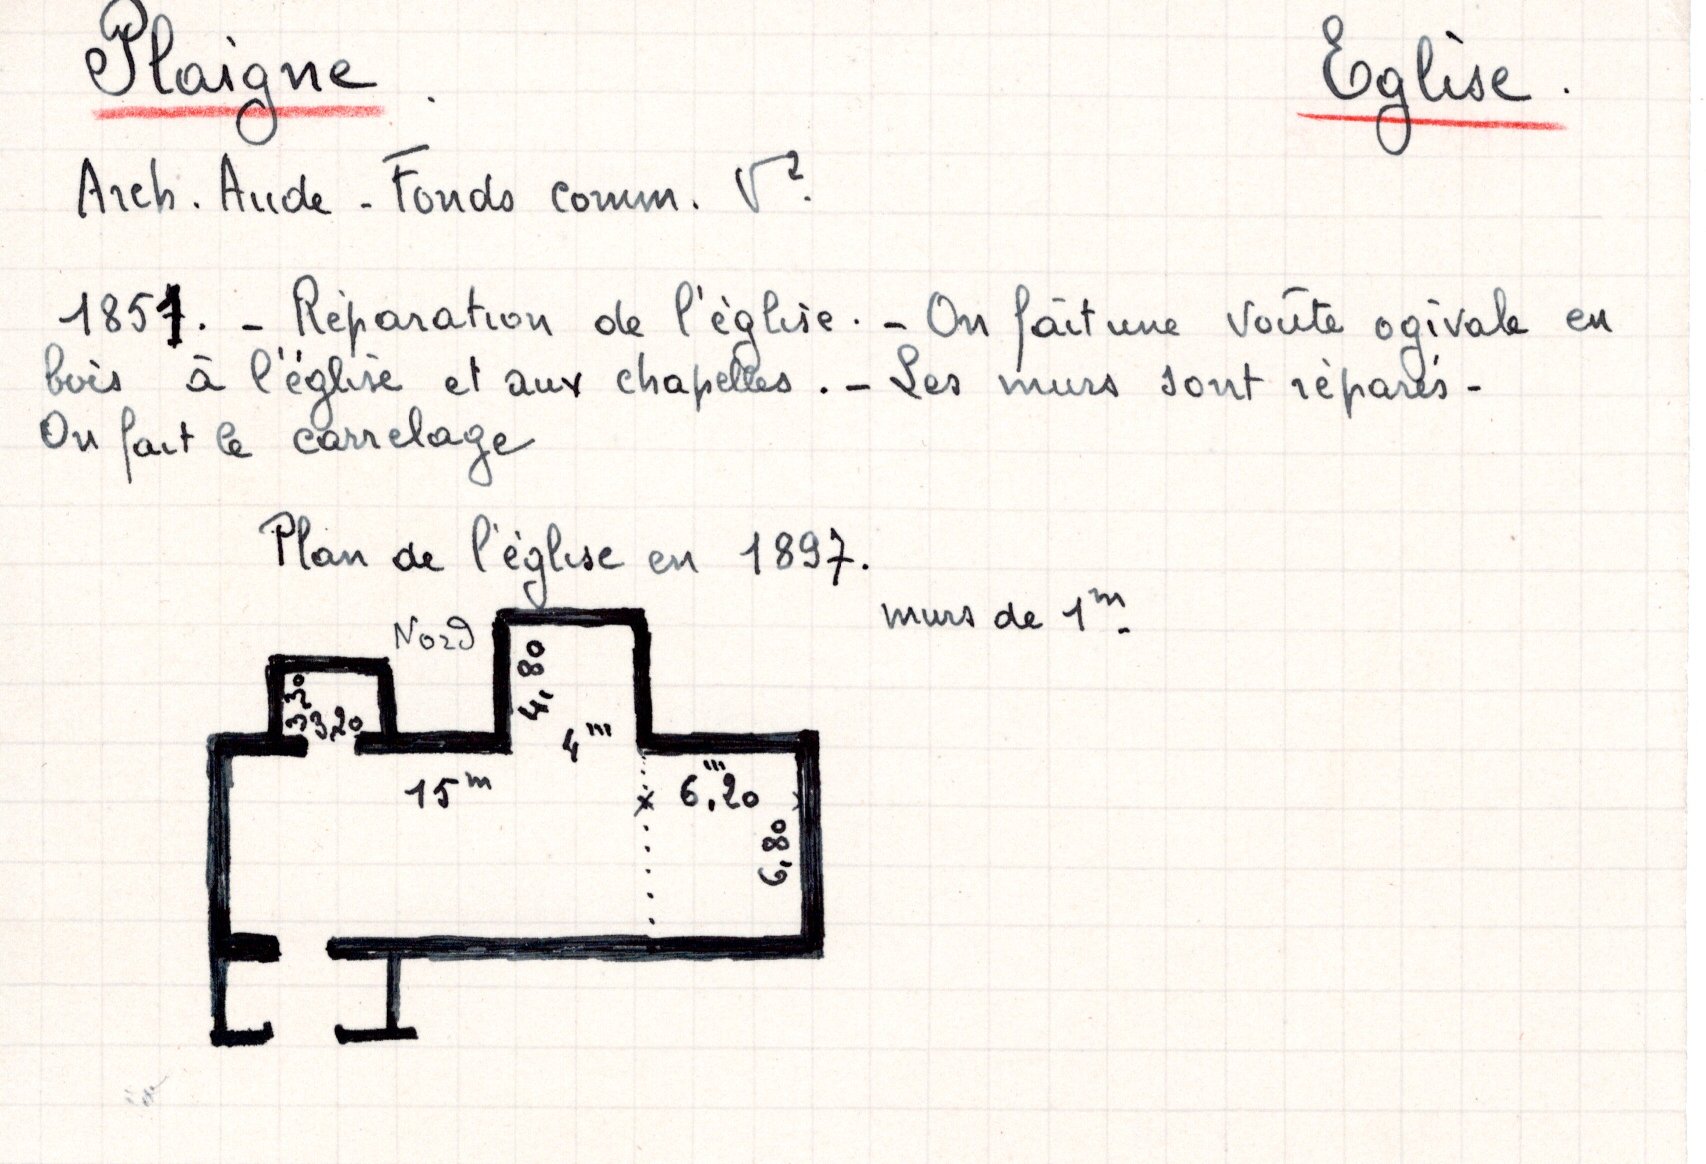 Plaigne.
Eglise.
Arch. Aude - Fonds comm. V².
1851. - Réparation de l'église. - On fait une voûte ogivale en
bois à l'église et aux chapelles. - Les murs sont réparés -
On fait le carrelage
Plan de l'église en 1897.
murs de 1m.
Nord
4,80
3,30
3,20
4m
15m
6,m20
6,80